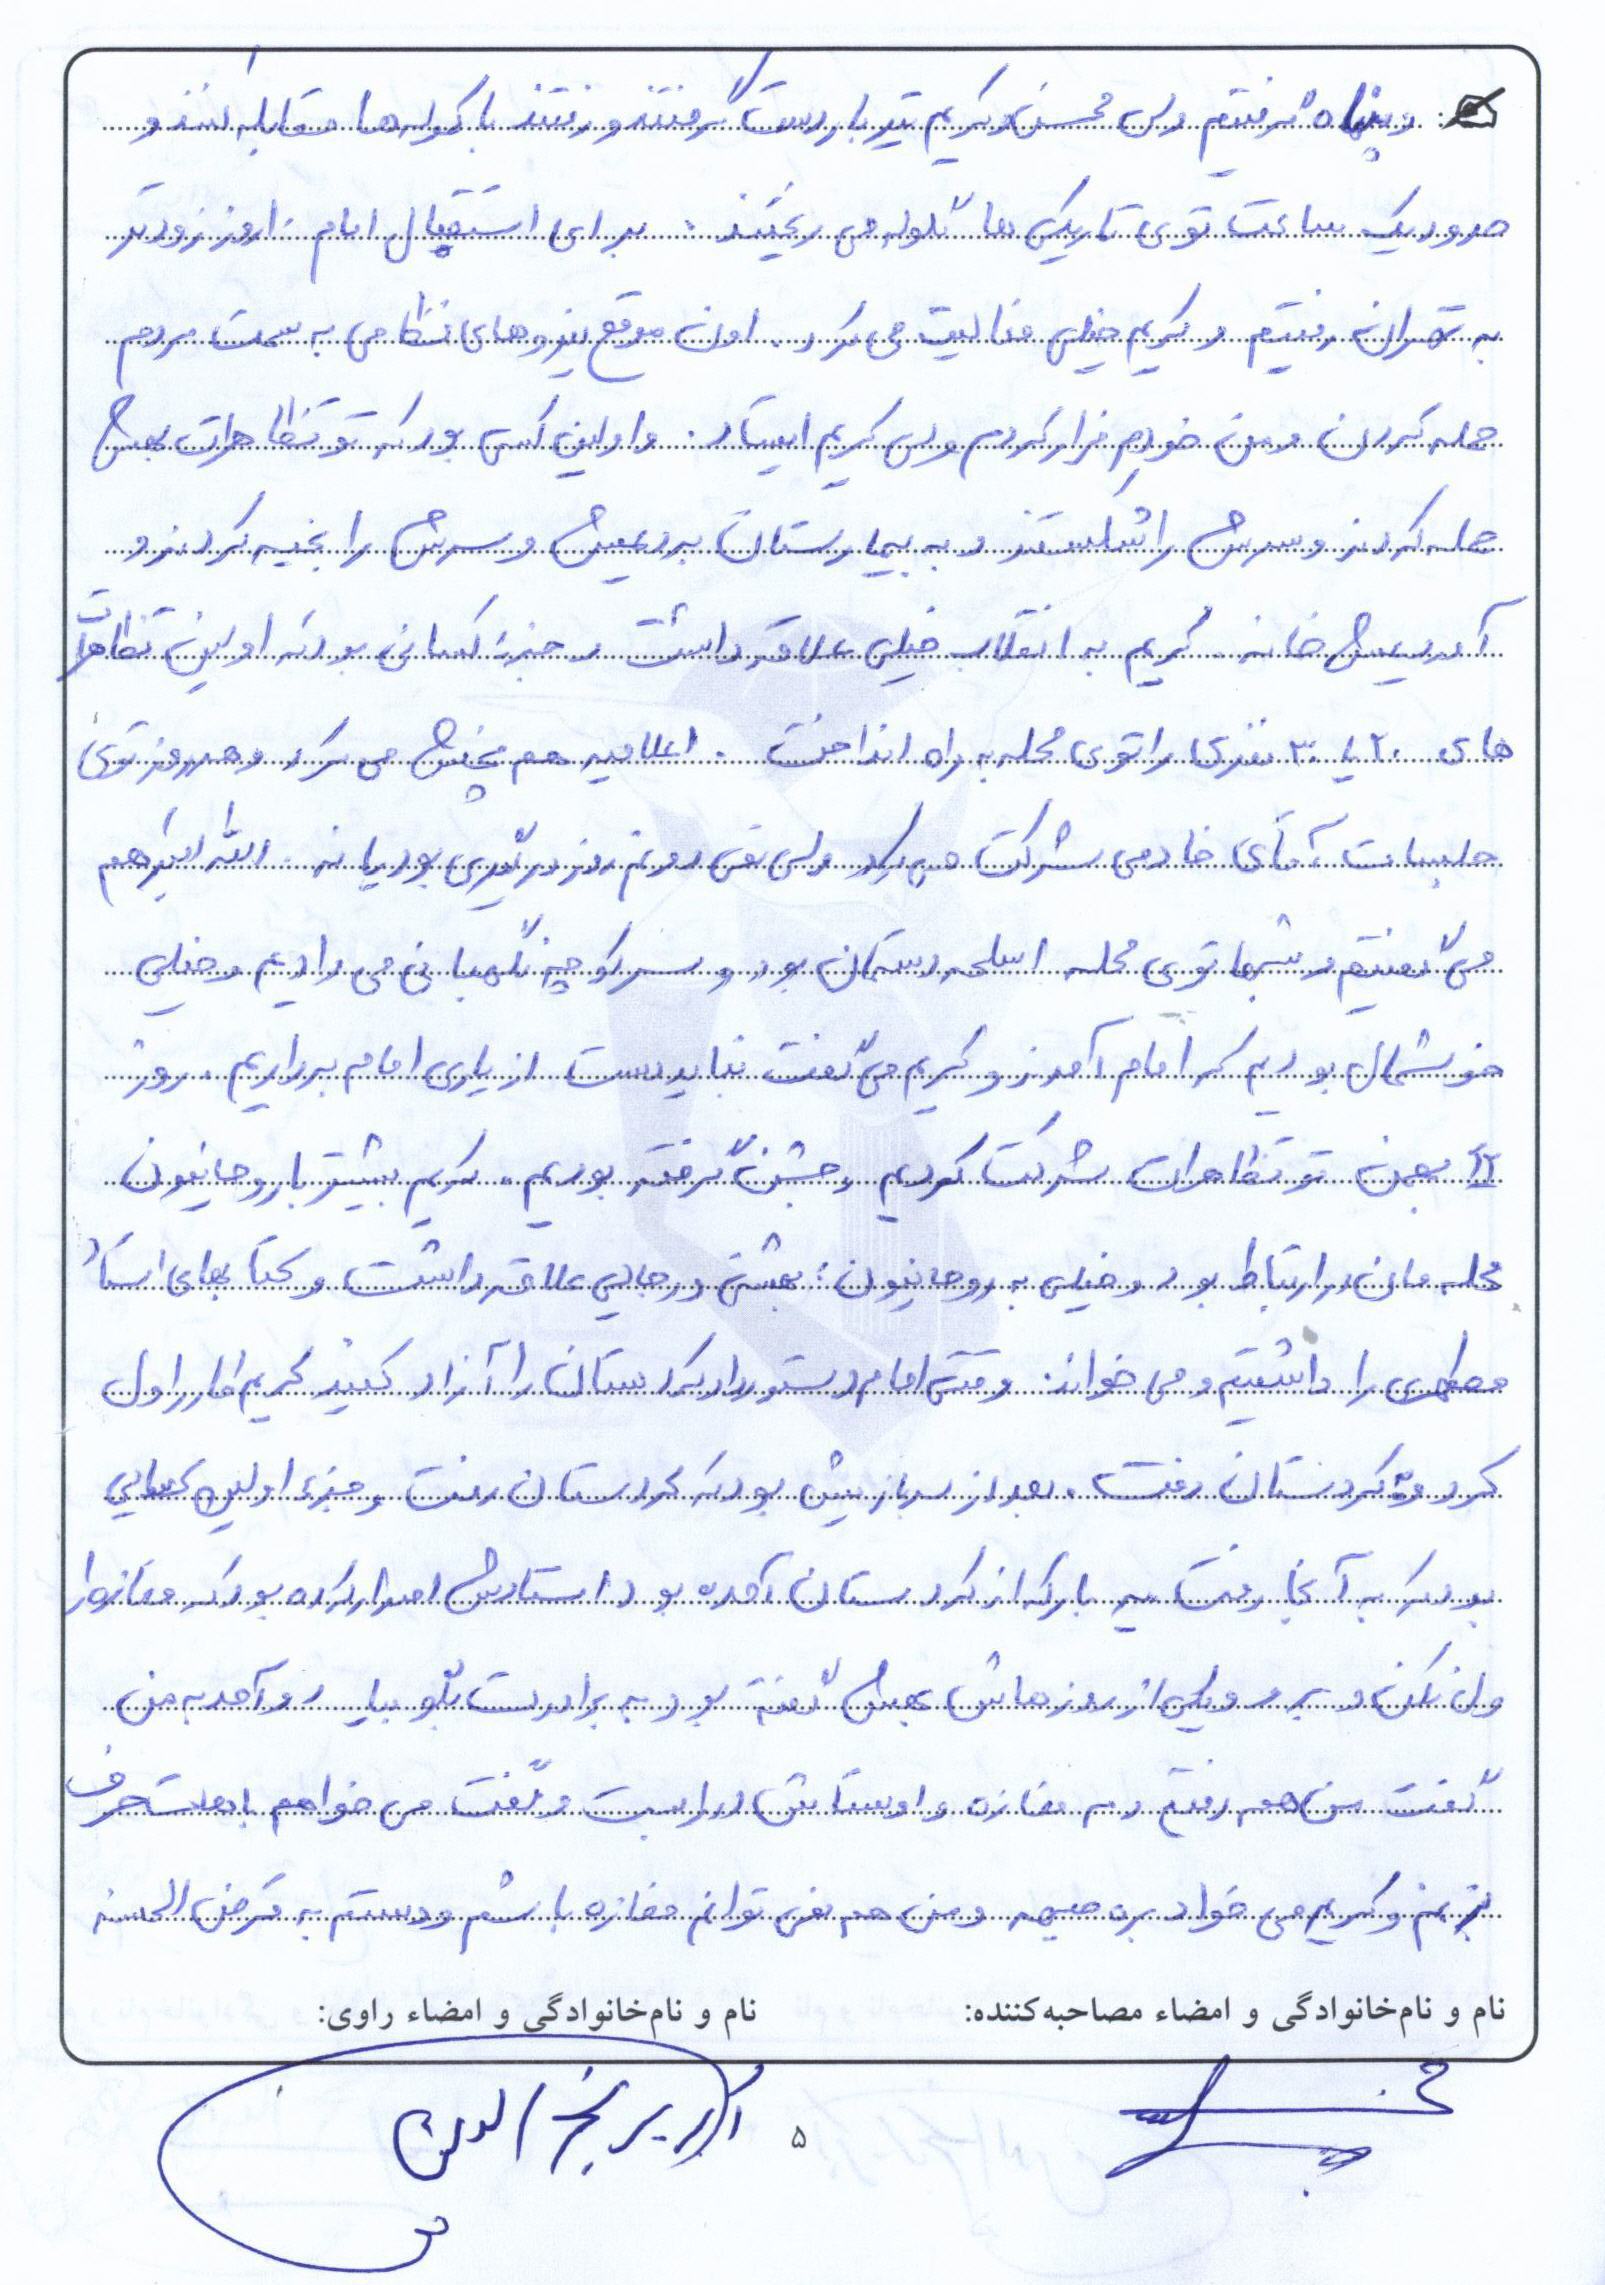 و پناه گرفتیم ولی محسن و کریم تیربار دست گرفتند و رفتند با کوله‌ها مقابله کنند و
حدود یک ساعت توی تاریکی ها گلوله می ریختند. برای استقبال امام ۱۰ روز زودتر
به تهران رفتیم و کریم خیلی فعالیت می کرد. اون موقع نیروهای نظامی به سمت مردم
حمله کردن و من خودم فرار کردم ولی کریم ایستاد. و اولین کسی بود که تو تظاهرات بهش
حمله کردند و سرش را شکستند و به بیمارستان بردیمش و سرش را بخیه کردند و
آوردیمش خانه. کریم به انقلاب خیلی علاقه داشت و جزء کسانی بود که اولین تظاهرات
های ۲۰ یا ۳۰ نفری را توی محله به راه انداخت. اعلامیه هم پخش می کرد و هر روز توی
جلسات آقای خادمی شرکت می کرد ولی نمی دونم روز درگیری بود یا نه. الله اکبر هم
می گفتیم و شبها توی محله اسلحه دستمان بود و سر کوچه نگهبانی می دادیم و خیلی
خوشحال بودیم که امام آمدند و کریم می گفت نباید دست از یاری امام برداریم. روز
۲۲ بهمن تو تظاهرات شرکت کردیم و جشن گرفته بودیم. کریم بیشتر با روحانیون
محله مان در ارتباط بود و خیلی به روحانیون: بهشتی و رجایی علاقه داشت و کتابهای استاد
مطهری را داشتیم و می خواند. وقتی امام دستور داد کردستان را آزاد کنید کریم افراد اول
کرد و به کردستان رفت. بعد از سربازیش بود که کردستان رفت و جزء اولین کسایی
بود که به آنجا رفت یه بار که از کردستان آمده بود استادش اصرار کرده بود که مغازه را
ول نکن و برو و یکی از روزهاش بهش گفته بود به برادرت بگو بیاد و آمد به من
گفت من هم رفتم دم مغازه و اوستاش در را بست و گفت می خواهم باهات حرف
بزنم و کریم می خواد بره جبهه و من هم نمی توانم مغازه باشم و دستم به قرض الحسنه
نام و نام‌خانوادگی و امضاء مصاحبه‌کننده: نام و نام‌خانوادگی و امضاء راوی:
۵